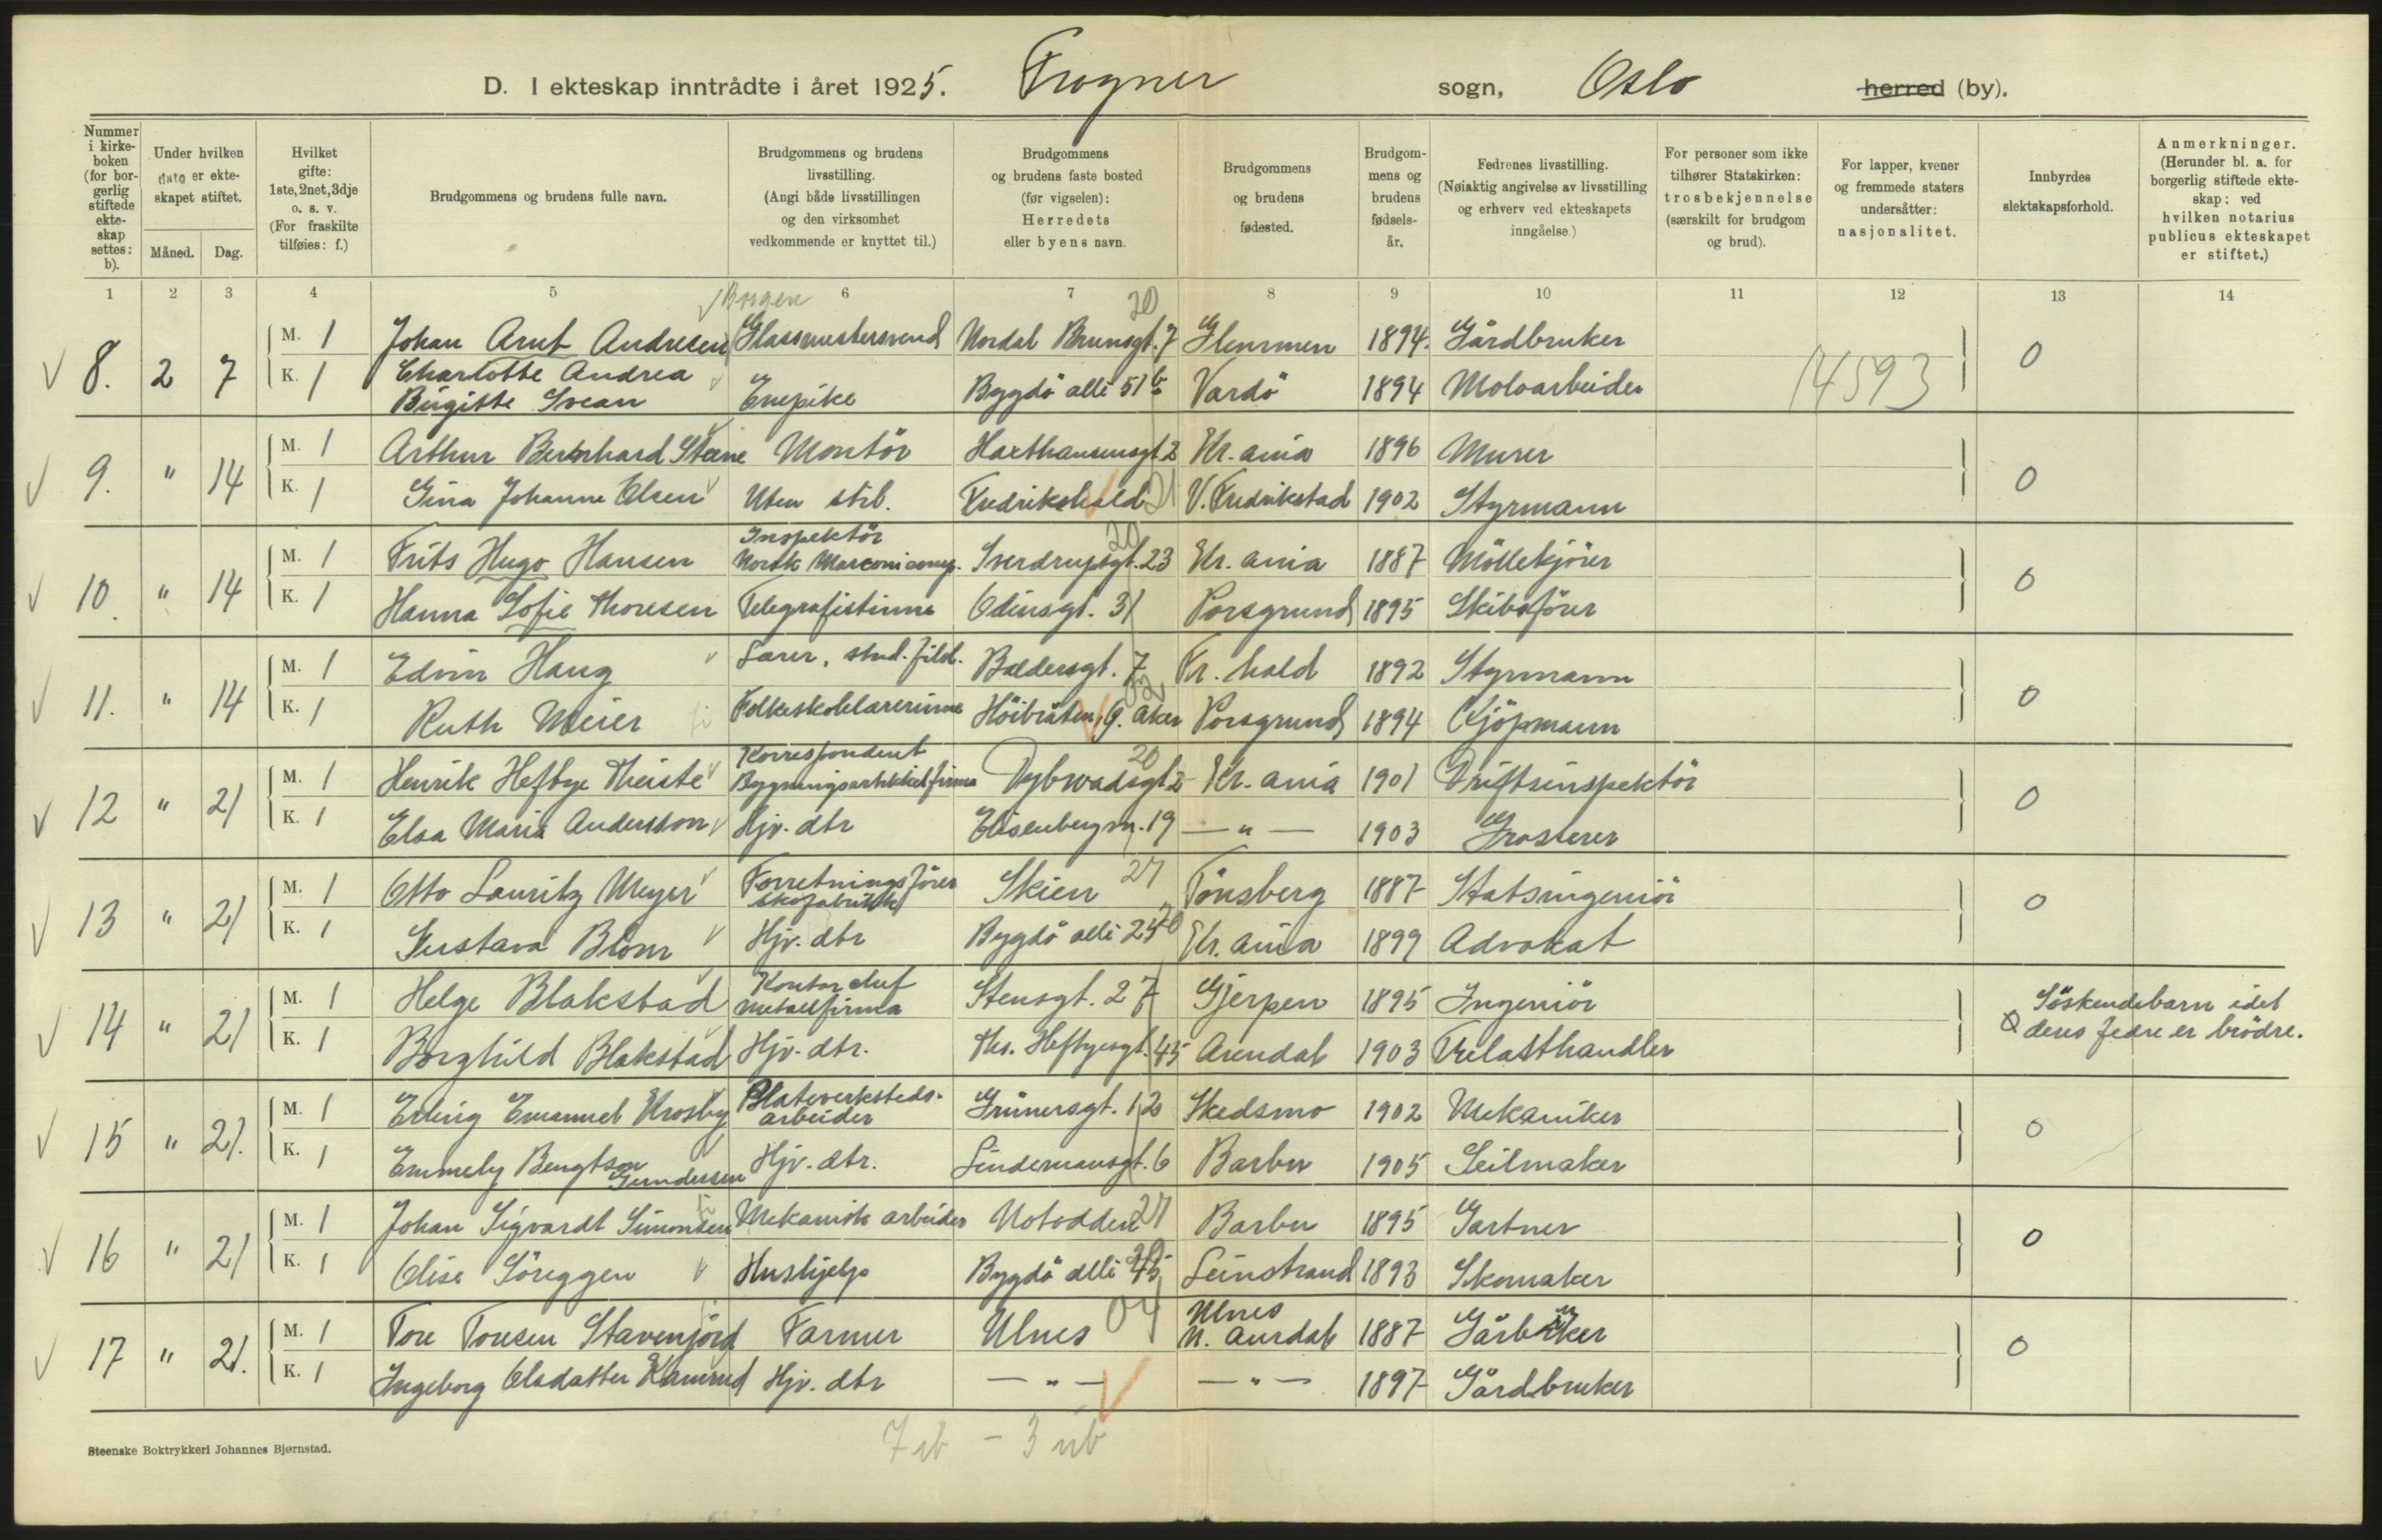 D. I ekteskap inntrådte i året 1925. Frogner sogn, Oslo herred (by).
Nummer i kirkeboken (for borgerlig stiftede ekteskap settes: b).
Under hvilken dato er ekteskapet stiftet.
Måned. Dag.
Hvilket gifte: 1ste, 2net, 3dje o. s. v. (For fraskilte tilføies: f.)
Brudgommens og brudens fulle navn.
Brudgommens og brudens livsstilling. (Angi både livsstillingen og den virksomhet vedkommende er knyttet til.)
Brudgommens og brudens faste bosted (før vigselen): Herredets eller byens navn.
Brudgommens og brudens fødested.
Brudgommens og brudens fødselsår.
Fedrenes livsstilling. (Nøiaktig angivelse av livsstilling og erhverv ved ekteskapets inngåelse.)
For personer som ikke tilhører Statskirken: trosbekjennelse (særskilt for brudgom og brud).
For lapper, kvener og fremmede staters undersåtter: nasjonalitet.
Innbyrdes slektskapsforhold.
Anmerkninger. (Herunder bl. a. for borgerlig stiftede ekteskap: ved hvilken notarius publicus ekteskapet er stiftet.)
1 2 3 4 5 6 7 8 9 10 11 12 13 14
Borgen 20
8. 2 7 M. 1 Johan Arnt Andresen Glassmestersvend Nordal Brunsgt. 7 Glemmen 1894. Gårdbruker 0
K. 1 Charlotte Andrea Birgitte Svean Enepike Bygdö allé 51 b Vardö 1894 Moloarbeider 14593
9. " 14 M. 1 Arthur Bernhard Steene Montör Haxthausensgt 2 Kr.ania 1896 Murer 0
K. 1 Gina Johanne Olsen Uten stil. Fredrikshald 21 V. Fredrikstad 1902 Styrmann
10. " 14 M. 1 Frits Hugo Hansen Inspektör Norsk Marconicomp. Sverdrupsgt. 23 20 Kr.ania 1887 Möllekjörer 0
K. 1 Hanna Sofie Thoresen Telegrafistinne Odinsgt. 31 Porsgrund 1895 Skibsförer
11. " 14 M. 1 Edvin Haug Lærer, stud. filol. Baldersgt. 7 Fr.hald 1892 Styrmann 0
K. 1 Ruth Meier Folkeskolelærerinne Höibråten, Ö. Aker 02 Porsgrund 1894 Kjöpmann
12 " 21 M. 1 Henrik Heftye Theiste Korrespondent Bygningsartikkelfirma Dybwadsgt 2 20 Kr.ania 1901 Driftsinspektör 0
K. 1 Elsa Maria Andersson Hjv. dtr Elisenbergv. 19 — " — 1903 Grosserer
13 " 21 M. 1 Otto Lauritz Meyer Forretningsförer skofabrikk Skien 27 Tönsberg 1887 Statsingeniör 0
K. 1 Gustava Blom Hjv. dtr Bygdö allé 24 20 Kr.ania 1899 Advokat
14 " 21 M. 1 Helge Blakstad Kontorchef metallfirma Stensgt. 27 Gjerpen 1895 Ingeniör Söskendebarn idet deres fedre er brödre.
K. 1 Borghild Blakstad Hjv. dtr. Ths. Heftyesgt. 45 Arendal 1903 Trelasthandler
15 " 21. M. 1 Erling Emanuel Krosby Plateverkstedsarbeider Grünersgt. 12 Skedsmo 1902 Mekaniker 0
K. 1 Emmely Bengtson Gundersen Hjv. dtr. Lindemansgt. 6 Barbu 1905 Seilmaker
16 " 21 M. 1 Johan Sigvardt Simonsen Mekanisk arbeider Notodden 27 Barbu 1895 Gartner 0
K. 1 Olise Söreggen Hushjelp Bygdö allé 45 20 Leinstrand 1893 Skomaker
17 " 21. M. 1 Tore Toresen Stavenjord Farmer Ulnes 04 Ulnes N. Aurdal 1887 Gårbruker 0
K. 1 Ingeborg Olsdatter Kamrud Hjv. dtr — " — — " — 1897 Gårdbruker
7 ib – 3 ub
Steenske Boktrykkeri Johannes Bjørnstad.